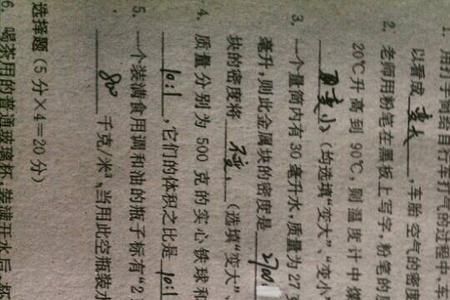 1. 用打气筒给自行车打气的过程中,车
以看成 变大 ,车胎空气的密度
2. 老师用粉笔在黑板上写字,粉笔的
20℃升高到90℃,则温度计中煤
变小 (均选填"变大"、"变小"
3. 一个量筒内有30毫升水,质量为27
毫升,则此金属块的密度是
块的密度将 不变 (选填"变大"、
4. 质量分别为500克的实心铁球和
10:1 ,它们的体积之比是 10:1
5. 一个装满食用调和油的瓶子标有"2
800 千克/米³,当用此空瓶装水
选择题(5分×4=20分)
6. 喝茶用的普通玻璃杯,装满开水后,杯